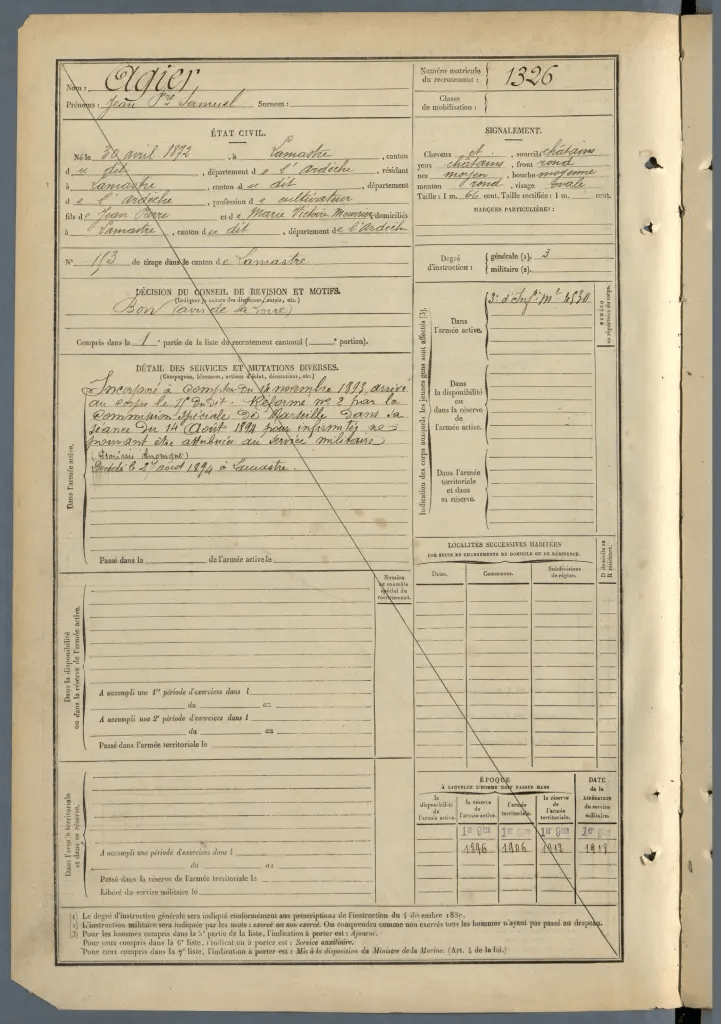 Nom : Agier
Prénoms : Jean Pre Samuel Surnom :
Numéro matricule
du recrutement : 1326
Classe
de mobilisation :
ÉTAT CIVIL.
Né le 30 avril 1872, à Lamastre, canton
du dit, département de l'Ardèche, résidant
à Lamastre, canton du dit, département
de l'Ardèche, profession de cultivateur
fils de Jean Pierre et de Marie Victoire Mounier, domiciliés
à Lamastre, canton du dit, département de l'Ardèche
N° 153 de tirage dans le canton de Lamastre
SIGNALEMENT.
Cheveux et, sourcils châtains
yeux châtains, front rond
nez moyen, bouche moyenne
menton rond, visage ovale
Taille : 1 m. 66 cent. Taille rectifiée : 1 m. cent.
MARQUES PARTICULIÈRES :
Degré
d'instruction :
générale (1). 3
militaire (2).
DÉCISION DU CONSEIL DE RÉVISION ET MOTIFS.
(Indiquer la nature des dispenses, sursis, etc.)
Bon
Compris dans la 1e partie de la liste du recrutement cantonal ( e portion).
DÉTAIL DES SERVICES ET MUTATIONS DIVERSES.
(Campagnes, blessures, actions d'éclat, décorations, etc.)
Dans l'armée active.
Incorporé à compter du 14 novembre 1893, arrivé
au corps le dit. Réformé n° 2 par la
Commission Spéciale de Marseille dans sa
séance du 14 Août 1894 pour infirmités ne
pouvant être attribuées au service militaire
Décédé le 27 août 1894 à Lamastre.
Passé dans la de l'armée active le
Indication des corps auxquels les jeunes gens sont affectés (3).
NUMÉRO
au répertoire du corps.
Dans
l'armée active.
3e d'Infie mle 4530
Dans
la disponibilité
ou
dans la réserve
de
l'armée active.
Dans l'armée
territoriale
et dans
sa réserve.
LOCALITÉS SUCCESSIVES HABITÉES
PAR SUITE DE CHANGEMENTS DE DOMICILE OU DE RÉSIDENCE.
D domicile ou
R résidence.
Dates. Communes. Subdivisions
de région.
Numéro
au contrôle
spécial du
recrutement.
Dans la disponibilité
ou dans la réserve de l'armée active.
A accompli une 1re période d'exercices dans l
du au
A accompli une 2e période d'exercices dans l
du au
Passé dans l'armée territoriale le
Dans l'armée territoriale
et dans sa réserve.
A accompli une période d'exercices dans l
du au
Passé dans la réserve de l'armée territoriale le
Libéré du service militaire le
ÉPOQUE
À LAQUELLE L'HOMME DOIT PASSER DANS
DATE
de la
LIBÉRATION
du service
militaire.
la
disponibilité
de
l'armée active.
la réserve
de
l'armée active.
l'armée
territoriale.
la réserve
de
l'armée
territoriale.
1er 9bre 1er 9bre 1er 9bre 1er 9bre
1896 1906 1912 1918
(1) Le degré d'instruction générale sera indiqué conformément aux prescriptions de l'instruction du 4 décembre 1889.
(2) L'instruction militaire sera indiquée par les mots : exercé ou non exercé. On comprendra comme non exercés tous les hommes n'ayant pas passé au drapeau.
(3) Pour les hommes compris dans la 5e partie de la liste, l'indication à porter est : Ajourné.
Pour ceux compris dans la 6e liste, l'indication à porter est : Service auxiliaire.
Pour ceux compris dans la 7e liste, l'indication à porter est : Mis à la disposition du Ministre de la Marine. (Art. 4 de la loi.)